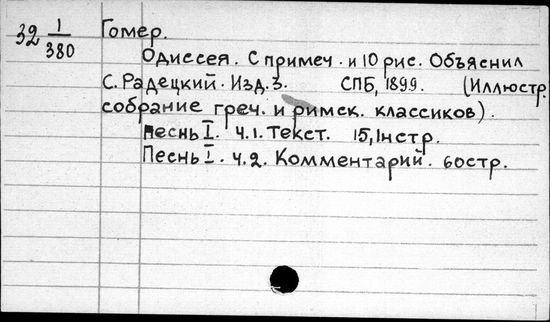 32 1/380 Гомер.
Одиссея. С примеч. и 10 рис. Объяснил
С. Радецкий. Изд. 3. СПБ, 1899. (Иллюстр.
собрание греч. и римск. классиков).
Песнь I. Ч.1. Текст. 15, 1нстр.
Песнь I. Ч.2. Комментарий. 60стр.